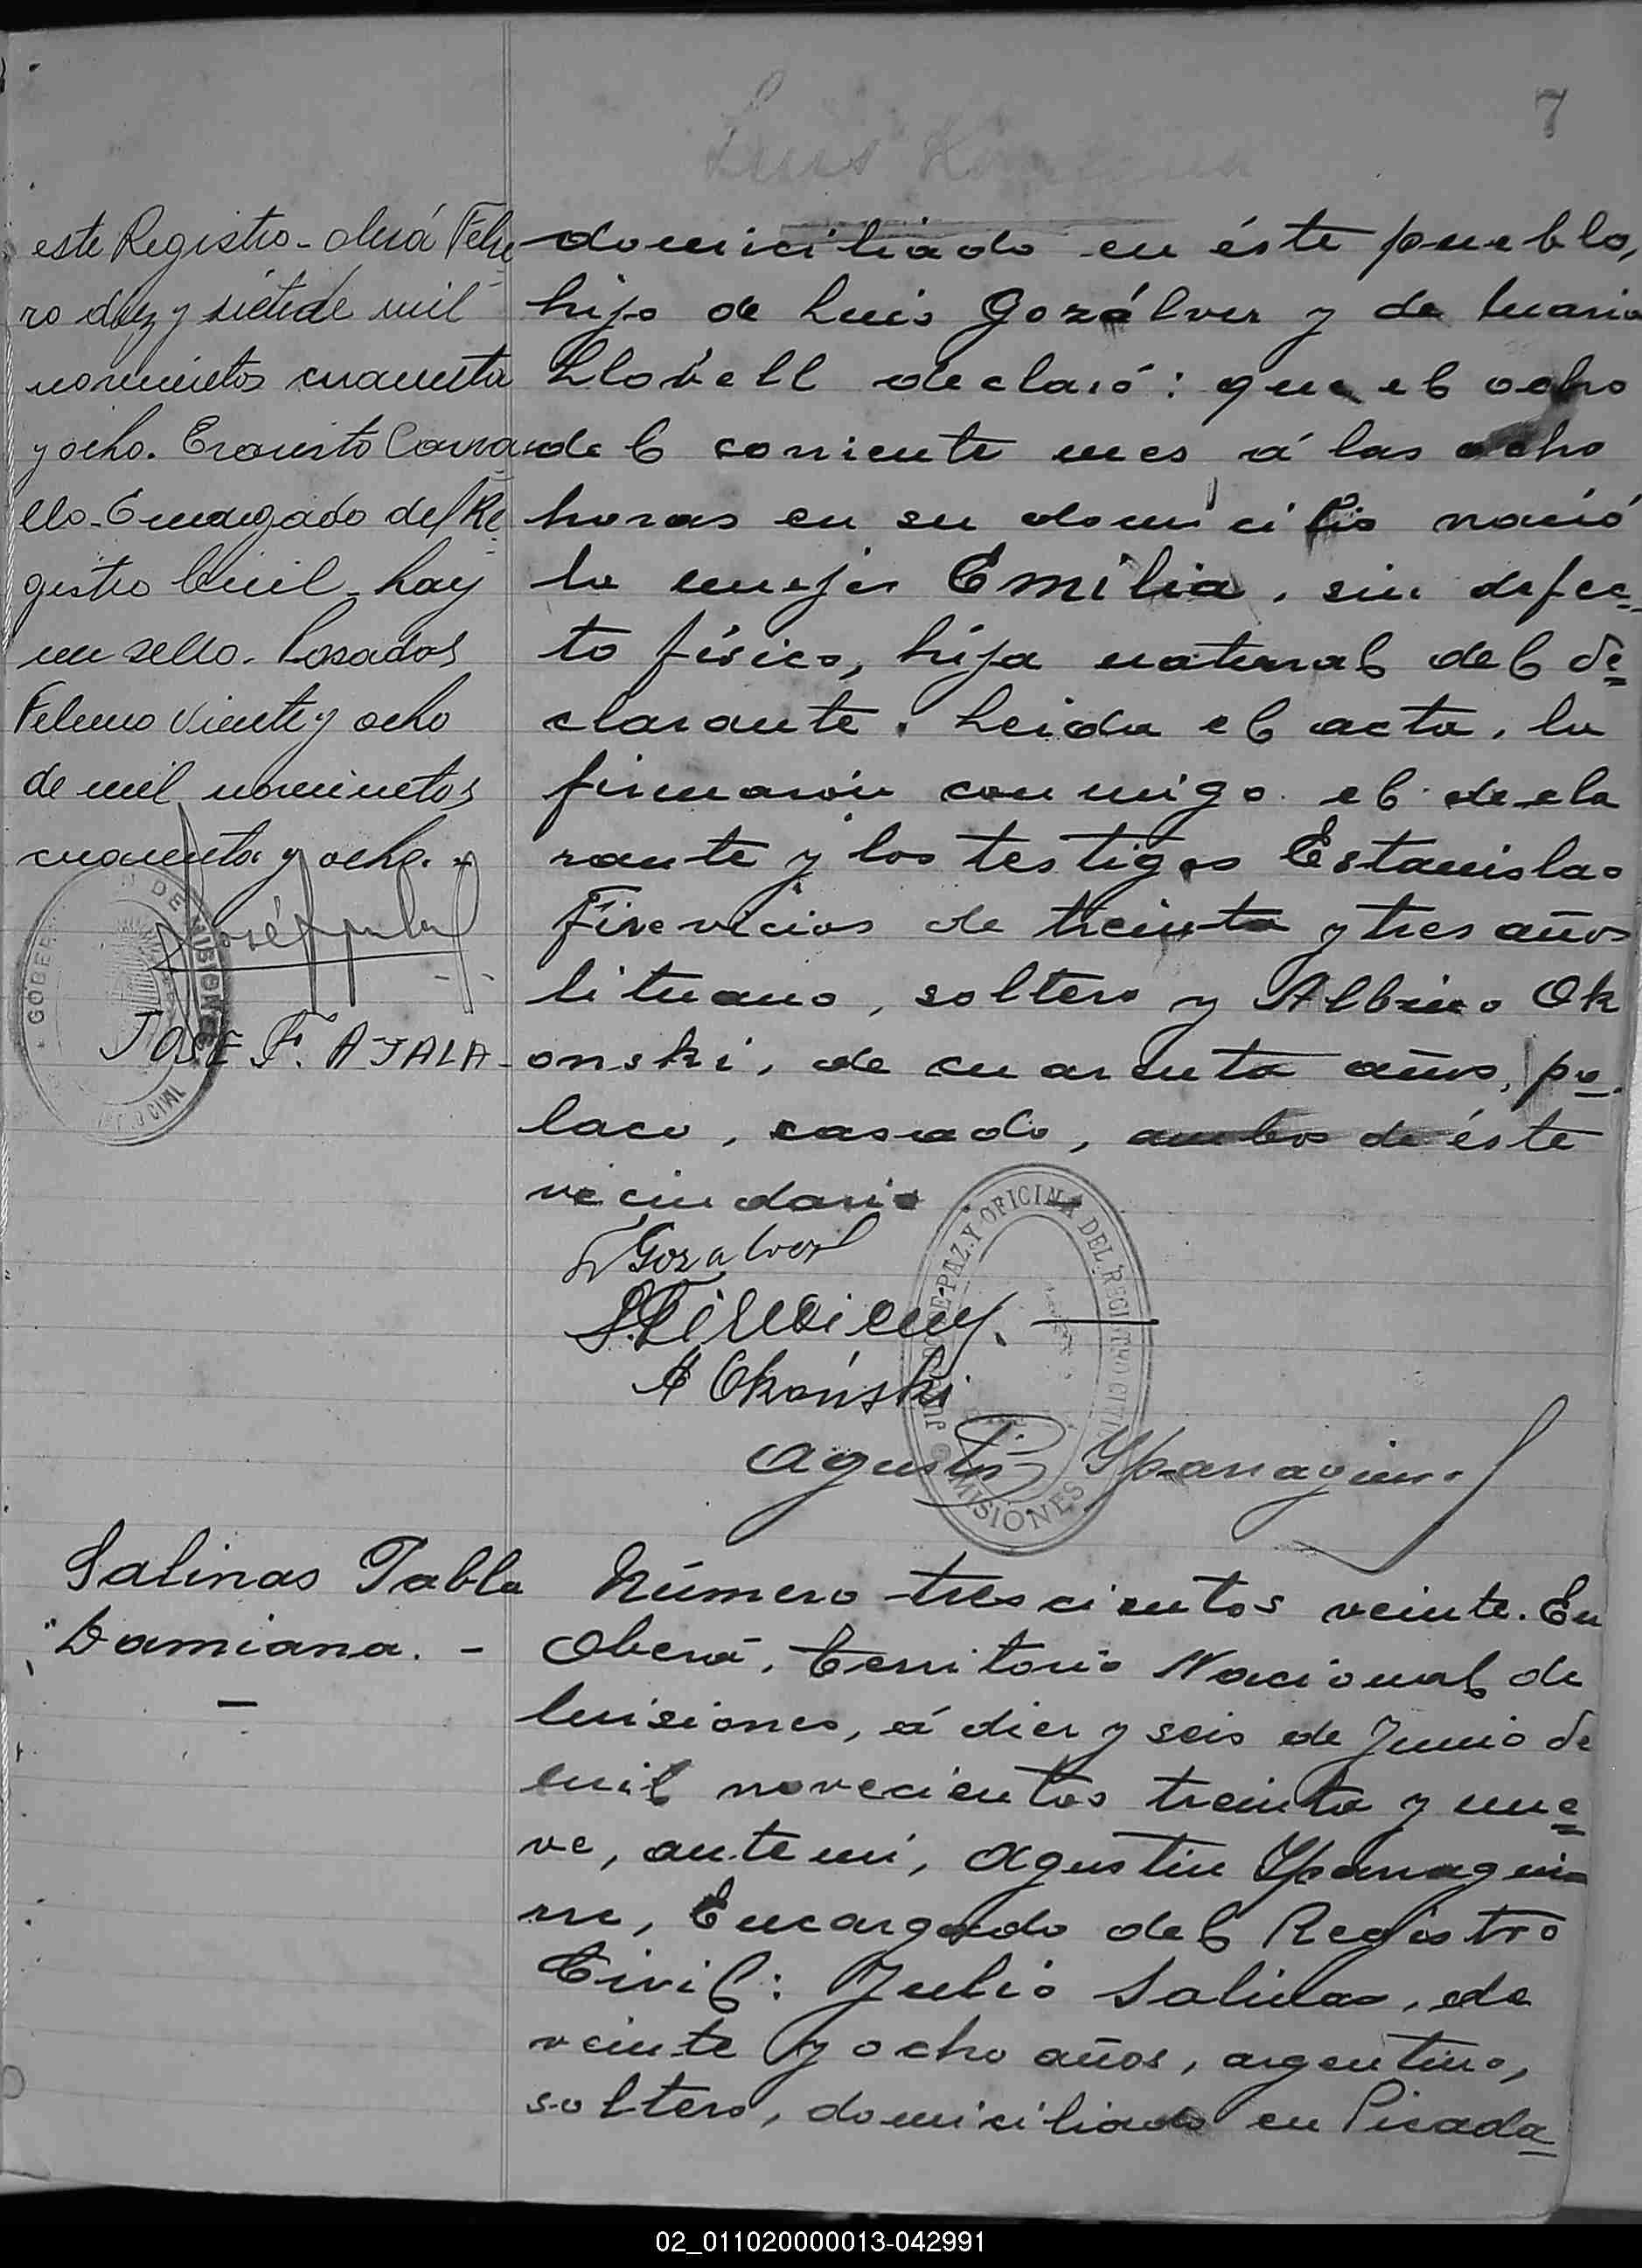 7
Luis
este Registro - Oberá Febre
ro diez y siete de mil
novecientos cuarenta
y ocho. Ernesto Carva
llo - Encargado del Re
gistro Civil - hay
un sello. Posadas
Febrero Veinte y ocho
de mil novecientos
cuarenta y ocho.
JOSE F. AYALA
domiciliado en éste pueblo,
hijo de Luis Gozálver y de Maria
Llovell declaró: que el ocho
del corriente mes á las ocho
horas en su domicilio nació
la mujer Emilia, sin defec=
to físico, hija natural del de=
clarante. Leida el acta, la
firmarón conmigo el decla
rante y los testigos Estanislao
Firevicius de treinta y tres años
lituano, soltero y Albino Ok
onski, de cuarenta años, po=
laco, casado, ambos de éste
vecindario
L Gozalver
S. Firevicius.
A Okoński
Agustin Yparraguirre
JUZGADO DE PAZ Y OFICINA DEL REGISTRO CIVIL
MISIONES
Salinas Pabla
Damiana. -
Número trescientos veinte. En
Oberá, Territorio Nacional de
Misiones, á diez y seis de Junio de
mil novecientos treinta y nue=
ve, ante mi, Agustin Yparragui=
rre, Encargado del Registro
Civil: Julio Salinas, de
veinte y ocho años, argentino,
soltero, domiciliado en Picada=
02_011020000013-042991